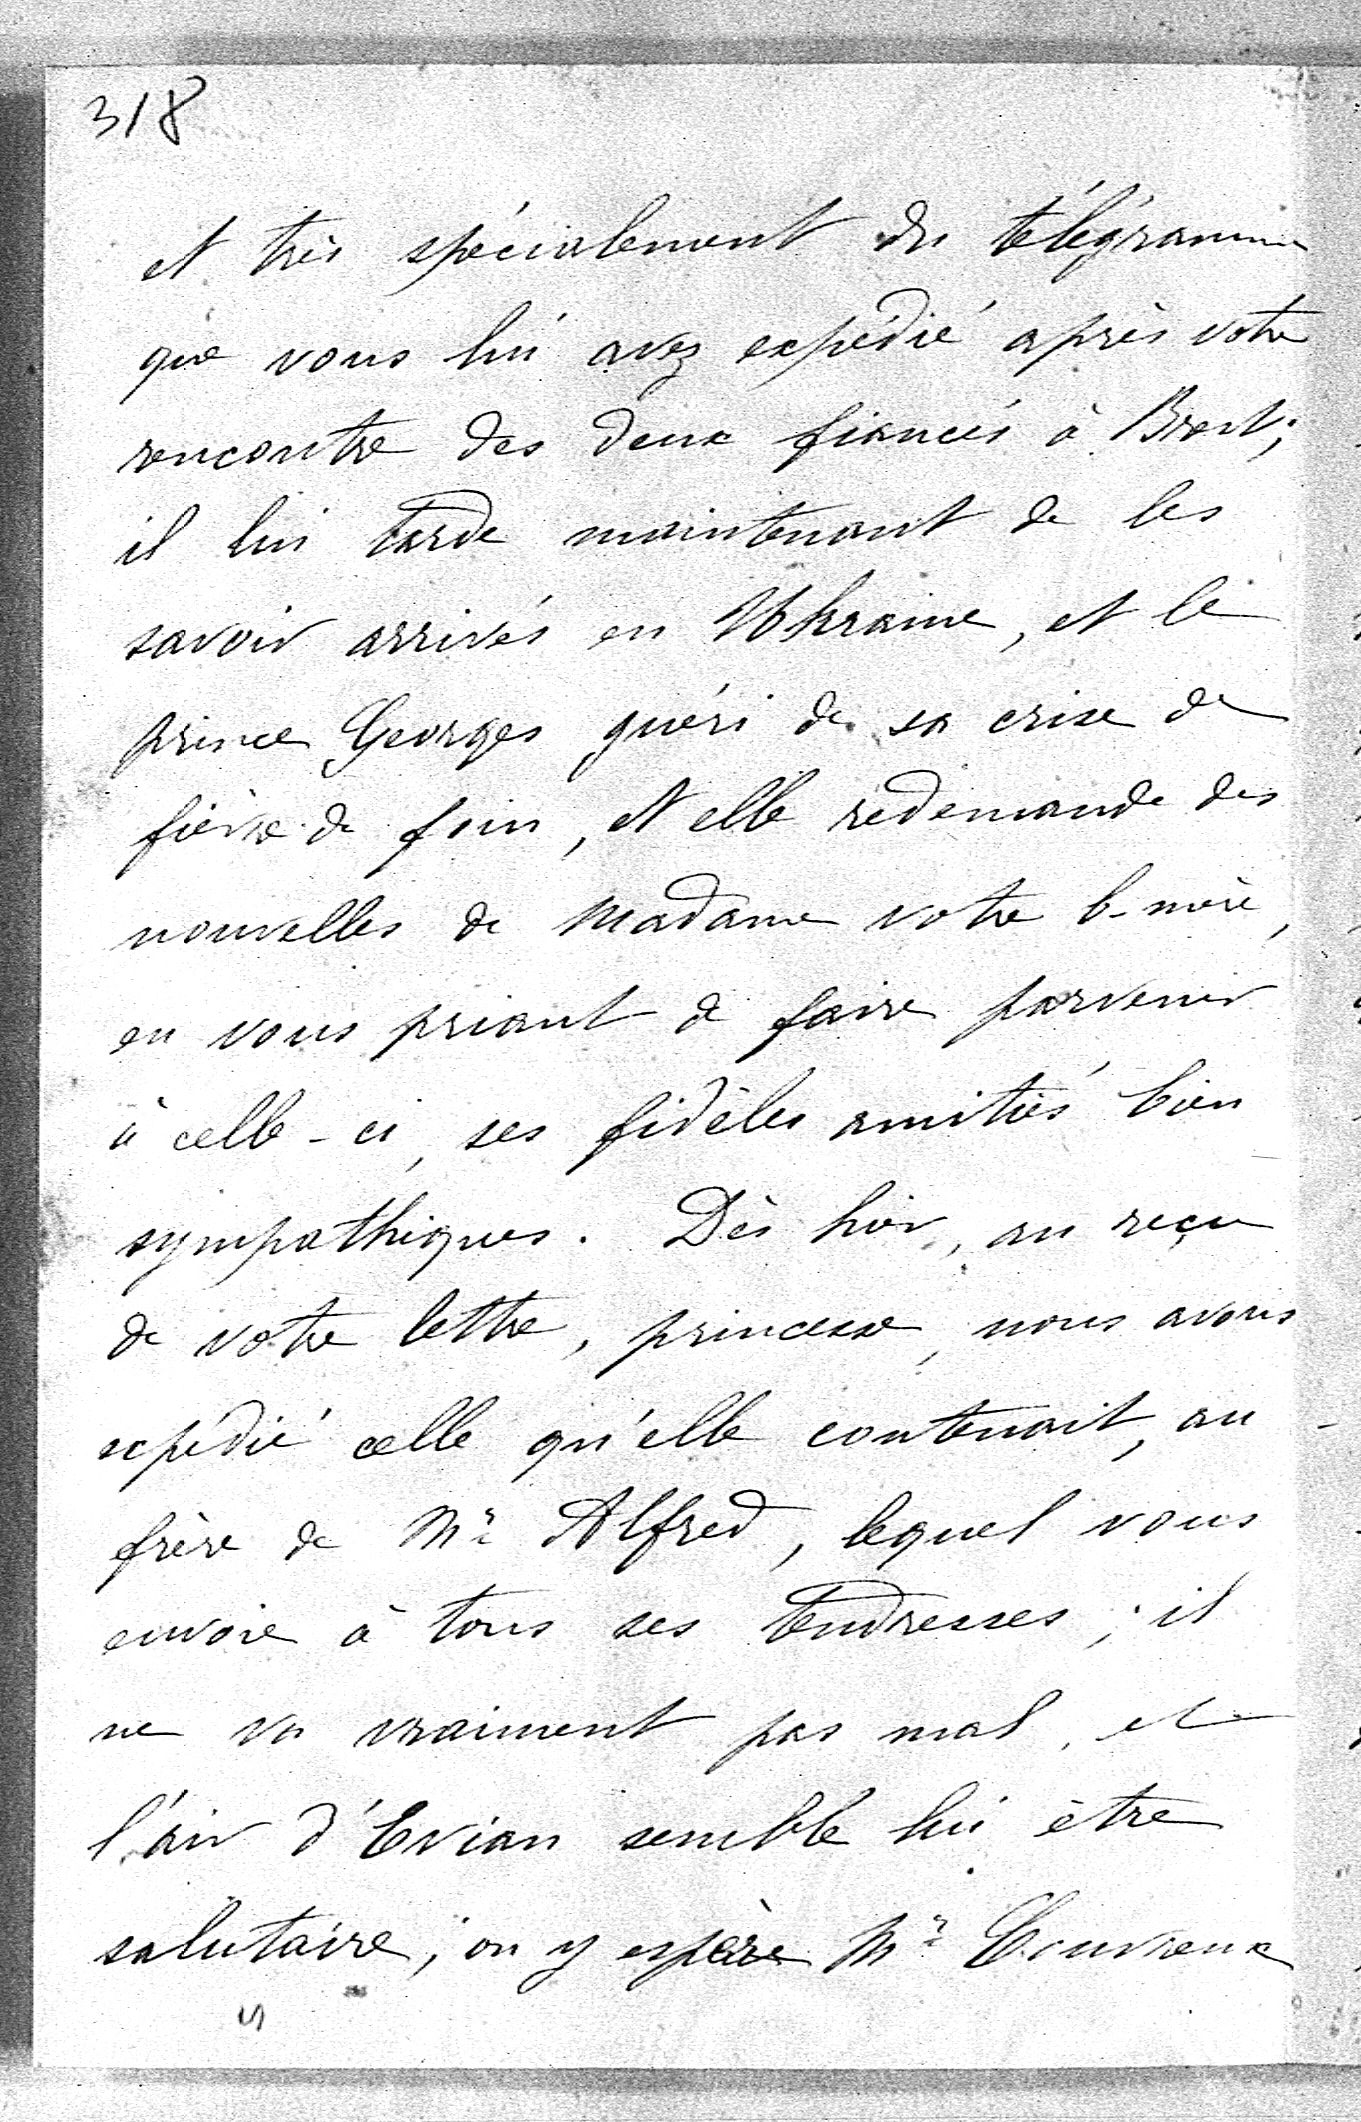 318
et très spécialement du télégramme
que vous lui avez expédié après votre
rencontre des deux fiancés à Brest;
il lui tarde maintenant de les
savoir arrivés en Ukraine, et le
prince Georges guéri de sa crise de
fièvre de foin, et elle redemande des
nouvelles de Madame votre b-mère,
en vous priant de faire parvenir
à celle-ci, ses fidèles amitiés bien
sympathiques. Dès hier, au reçu
de votre lettre, princesse, nous avons
expédié celle qu'elle contenait, au
frère de Mr Alfred, lequel vous
envoie à tous ses tendresses; il
ne va vraiment pas mal, et
l'air d'Evian semble lui être
salutaire; on y espère Mr Couvreux